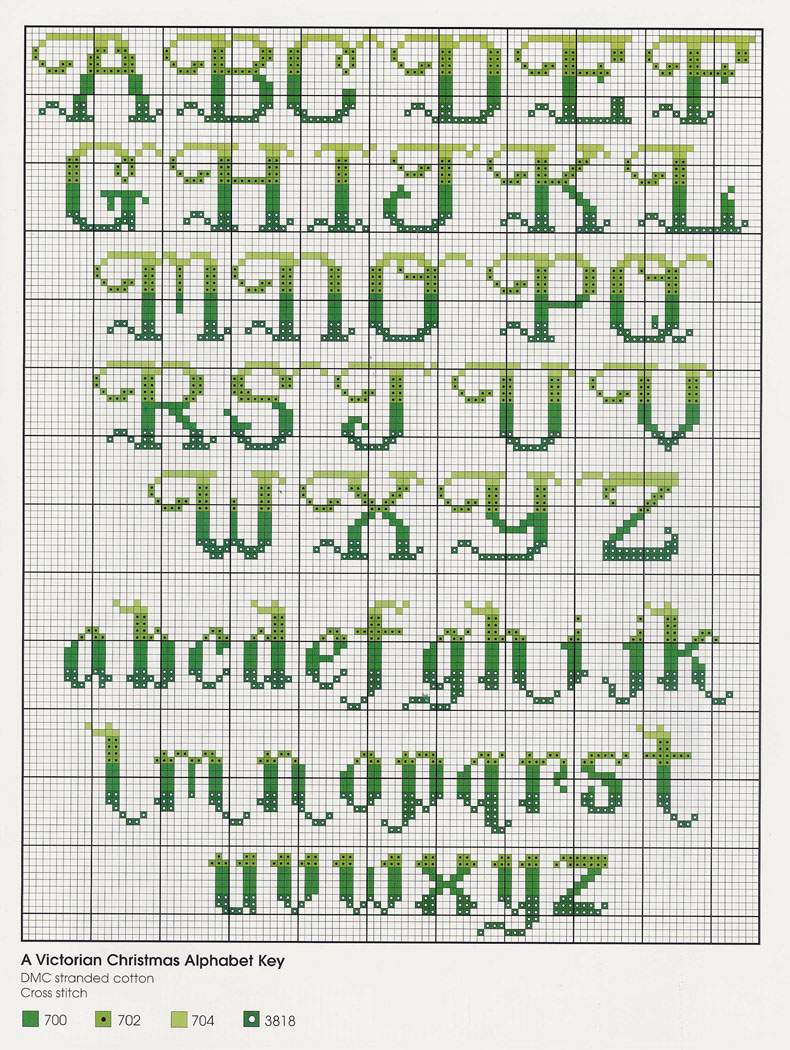 A B C D E F
G H I J K L
M N O P Q
R S T U V
W X Y Z
a b c d e f g h i j k
l m n o p q r s t
u v w x y z
A Victorian Christmas Alphabet Key
DMC stranded cotton
Cross stitch
700 702 704 3818